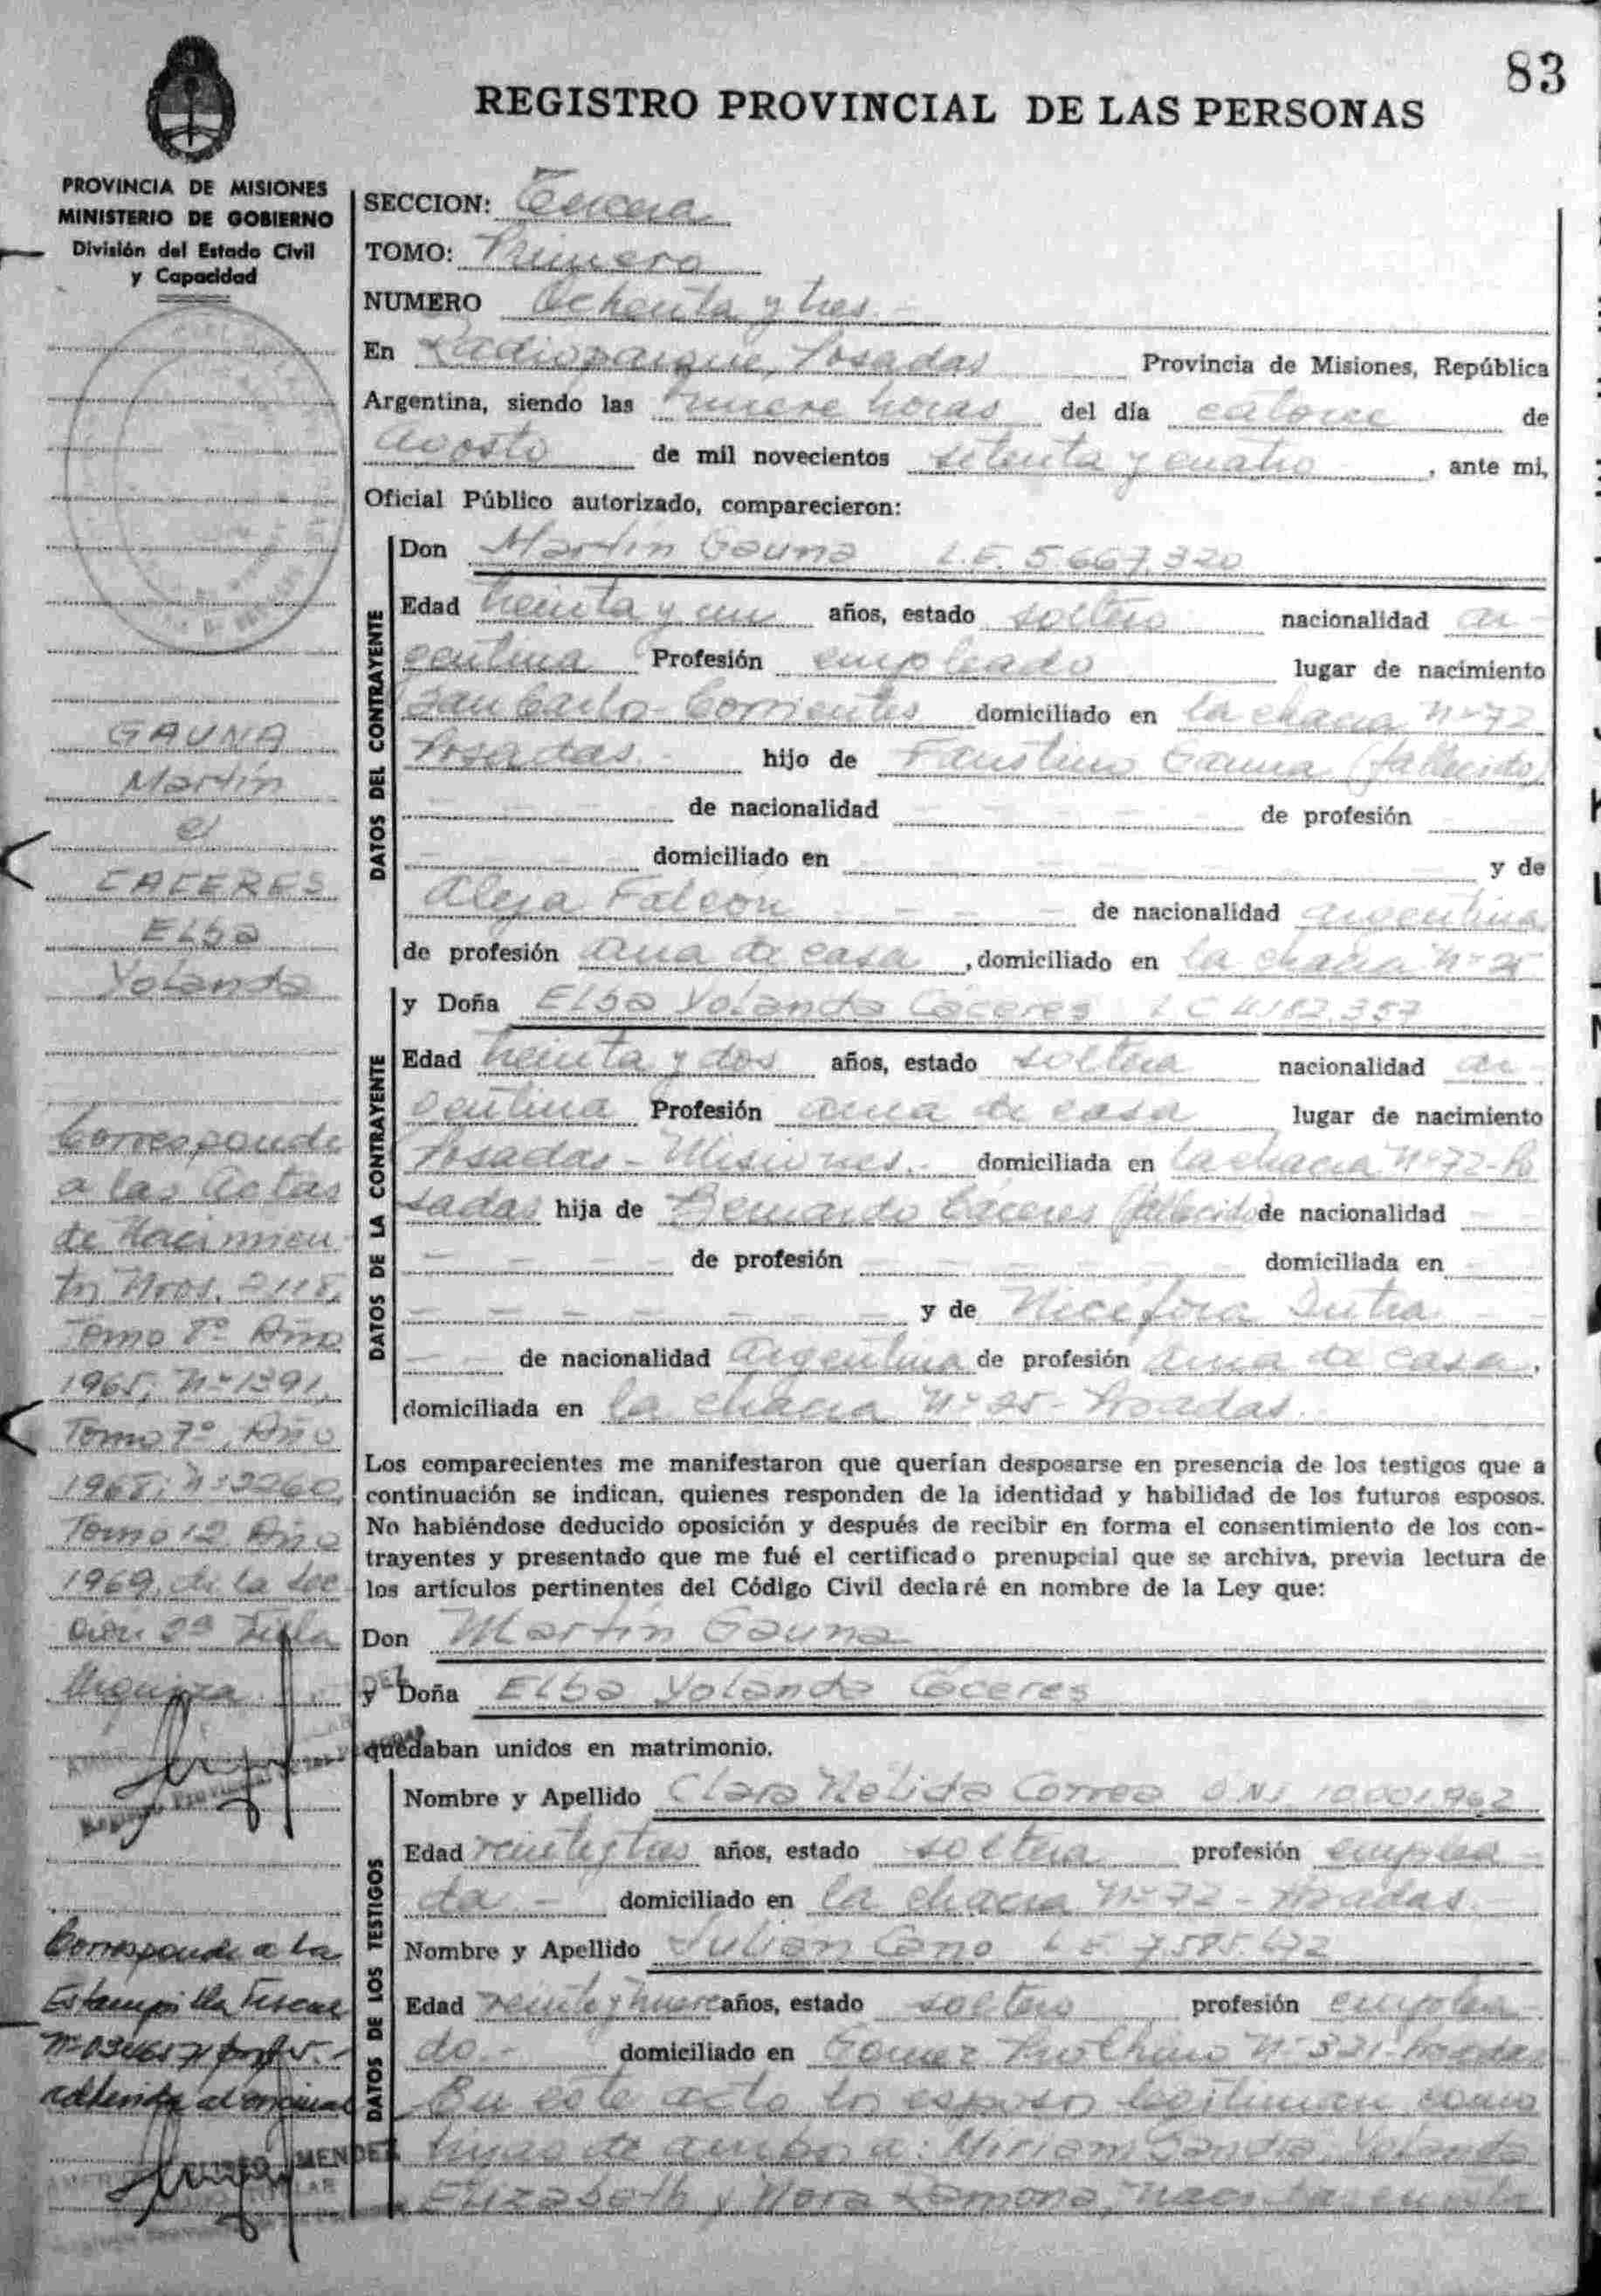 83
REGISTRO PROVINCIAL DE LAS PERSONAS
PROVINCIA DE MISIONES
MINISTERIO DE GOBIERNO
División del Estado Civil
y Capacidad
GAUNA
Martín
c/
CACERES
Elba
Yolanda
Corresponde
a las Actas
de Nacimien-
tos Nros. 2118,
Tomo 8º Año
1965; Nº 1391,
Tomo 7º, Año
1968; Nº 2260,
Tomo 12 Año
1969, de la Sec
ción 2ª
Corresponde a la
Estampilla Fiscal
adherida al original
MENDEZ
SECCION: Tercera
TOMO: Primero
NUMERO Ochenta y tres.-
En Radioparque, Posadas Provincia de Misiones, República
Argentina, siendo las nueve horas del día catorce de
agosto de mil novecientos setenta y cuatro, ante mi,
Oficial Público autorizado, comparecieron:
DATOS DEL CONTRAYENTE
Don Martín Gauna L.E. 5.667.320
Edad treinta y un años, estado soltero nacionalidad ar-
gentina Profesión empleado lugar de nacimiento
San Carlo-Corrientes domiciliado en la chacra Nº 72
Posadas.- hijo de Faustino Gauna (fallecido)
de nacionalidad de profesión
domiciliado en y de
Aleja Falcón de nacionalidad argentina
de profesión ama de casa, domiciliado en la chacra Nº 25
DATOS DE LA CONTRAYENTE
y Doña Elba Yolanda Cáceres L C 4.182.357
Edad treinta y dos años, estado soltera nacionalidad ar-
gentina Profesión ama de casa lugar de nacimiento
Posadas-Misiones.- domiciliada en la chacra Nº 72-Po
sadas hija de Bernardo Cáceres (fallecido) de nacionalidad
de profesión domiciliada en
y de Nicéfora Dutra
de nacionalidad argentina de profesión ama de casa,
domiciliada en la chacra Nº 25-Posadas.
Los comparecientes me manifestaron que querían desposarse en presencia de los testigos que a
continuación se indican, quienes responden de la identidad y habilidad de los futuros esposos.
No habiéndose deducido oposición y después de recibir en forma el consentimiento de los con-
trayentes y presentado que me fué el certificado prenupcial que se archiva, previa lectura de
los artículos pertinentes del Código Civil declaré en nombre de la Ley que:
Don Martín Gauna
y Doña Elba Yolanda Cáceres
quedaban unidos en matrimonio.
DATOS DE LOS TESTIGOS
Nombre y Apellido Clara Nélida Correa D.N.I 10.001.962
Edad veintitres años, estado soltera profesión emplea
da.- domiciliado en la chacra Nº 72-Posadas.
Nombre y Apellido Julian Cano L E 7.585.672
Edad veintinueve años, estado soltero profesión emplea-
do.- domiciliado en Nº 321-Posadas
En este acto los esposos legitiman como
hijas de ambos a: Miriam Sandra, Yolanda
Elizabeth y Nora Ramona,